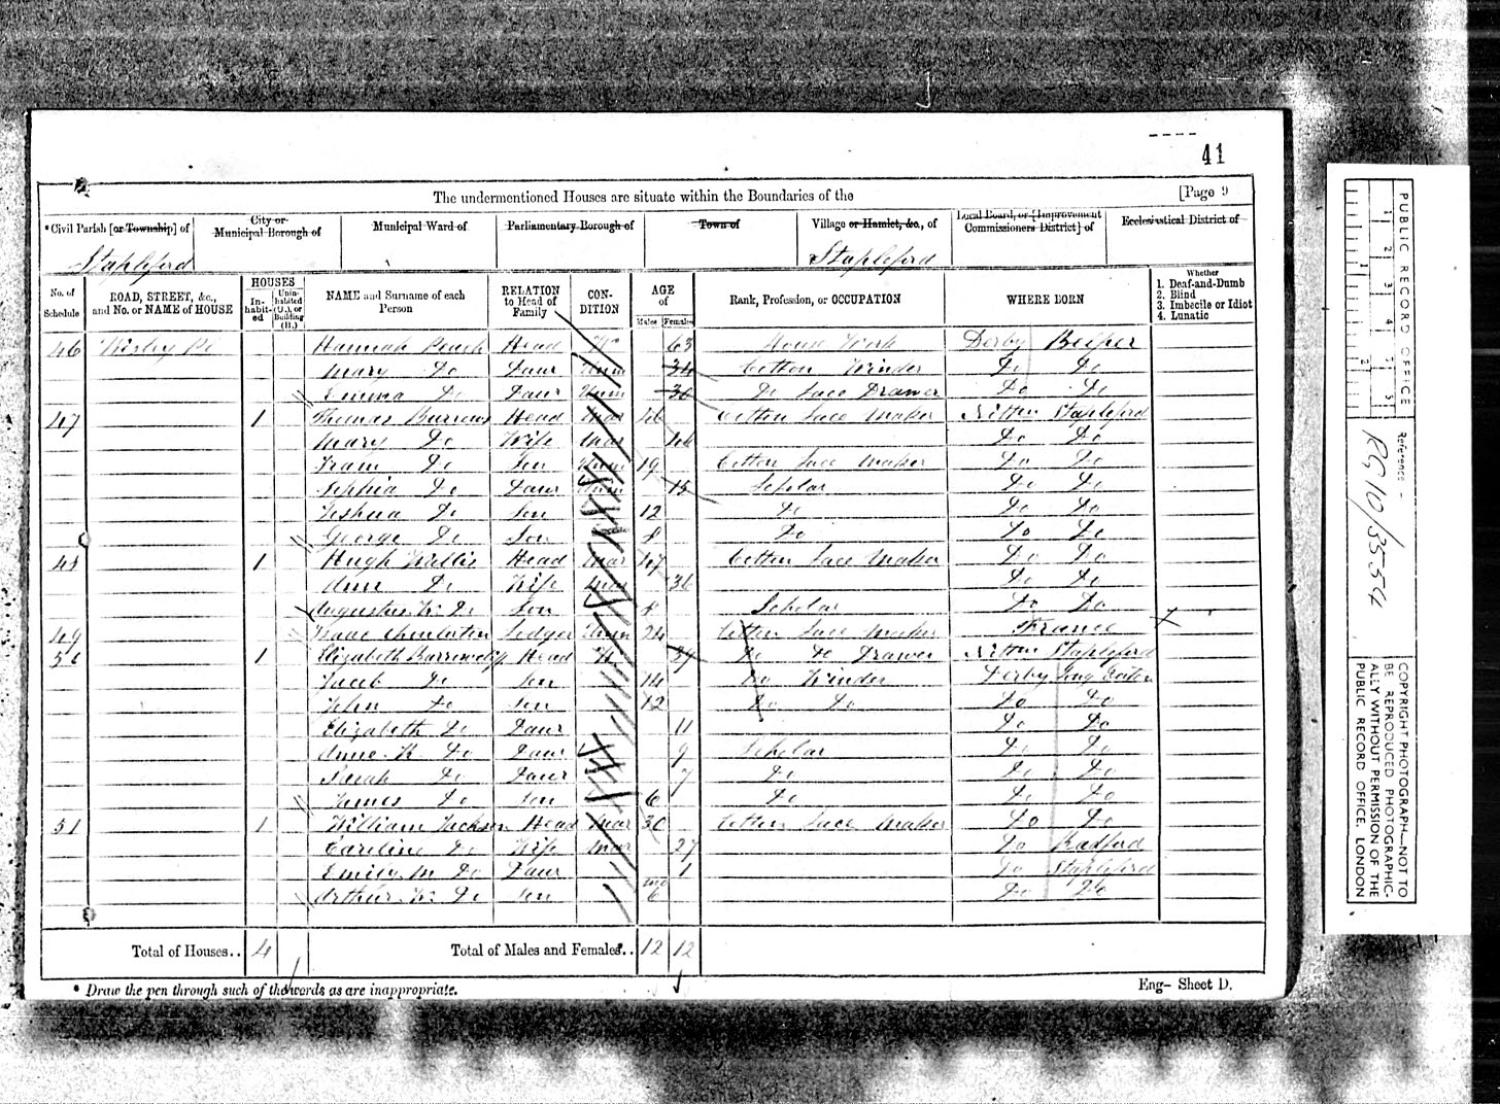 41
The undermentioned Houses are situate within the Boundaries of the [Page 9
*Civil Parish [or Township] of City or Municipal Borough of Municipal Ward of Parliamentary Borough of Town of Village or Hamlet, &c., of Local Board, or [Improvement Commissioners District] of Ecclesiastical District of
Stapleford Stapleford
No. of Schedule ROAD, STREET, &c., and No. or NAME of HOUSE HOUSES In-habit-ed Unin-habited (U.), or Building (B.) NAME and Surname of each Person RELATION to Head of Family CON-DITION AGE of Males Females Rank, Profession, or OCCUPATION WHERE BORN Whether 1. Deaf-and-Dumb 2. Blind 3. Imbecile or Idiot 4. Lunatic
46 Hannah Head 63 House Work Derby Belper
Mary Do Daur Unm 34 Cotton Winder Do Do
Emma Do Daur Unm 30 Do Lace Drawer Do Do
47 1 Thomas Burrows Head Mar 46 Cotton Lace Maker Stapleford
Mary Do Wife Mar 46 Do Do
Do Son Unm 19 Cotton Lace Maker Do Do
Sophia Do Daur Unm 15 Scholar Do Do
Joshua Do Son 12 Do Do Do
George Do Son 8 Do Do Do
48 1 Hugh Wallis Head Mar 47 Cotton Lace Maker Do Do
Ann Do Wife Mar 36 Do Do
Augustus W. Do Son 8 Scholar Do Do
49 Isaac Lodger Unm 24 Cotton Lace Maker France
50 1 Elizabeth Barrowcliff Head W 37 Do Do Drawer Stapleford
Jacob Do Son 14 Do Winder Derby Long Eaton
John Do Son 12 Do Do Do Do
Elizabeth Do Daur 11 Do Do
Anne Do Daur 9 Scholar Do Do
Sarah Do Daur 7 Do Do Do
James Do Son 6 Do Do Do
51 1 William Jackson Head Mar 30 Cotton Lace Maker Do Do
Caroline Do Wife Mar 27 Do Radford
Emily M Do Daur 1 Do Stapleford
Arthur W. Do Son 6 mo Do Do
Total of Houses.. 4 Total of Males and Females.. 12 12
* Draw the pen through such of the words as are inappropriate. Eng- Sheet D.
PUBLIC RECORD OFFICE
Reference :-
RG 10/3554
COPYRIGHT PHOTOGRAPH—NOT TO
BE REPRODUCED PHOTOGRAPHIC-
ALLY WITHOUT PERMISSION OF THE
PUBLIC RECORD OFFICE, LONDON